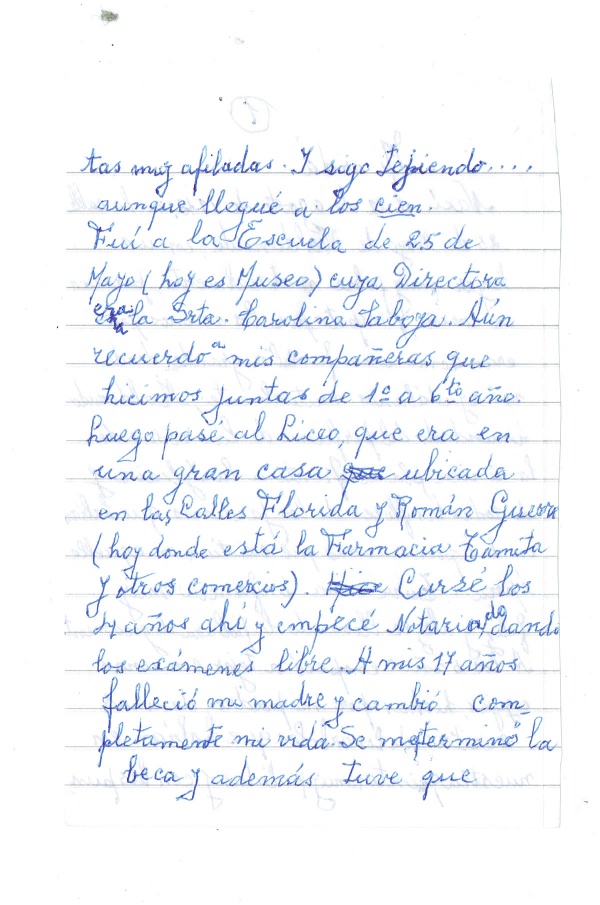 tas muy afiladas. Y sigo tejiendo....
aunque llegué a los cien.
Fuí a la Escuela de 25 de
Mayo (hoy es Museo) cuya Directora
era la Srta. Carolina Saboya. Aún
recuerdo a mis compañeras que
hicimos juntas de 1º a 6to año.
Luego pasé al Liceo, que era en
una gran casa que ubicada
en las Calles Florida y Román Guerra
(hoy donde está la Farmacia Camita
y otros comercios). Cursé los
4 años ahí y empecé Notariado, dando
los exámenes libre. A mis 17 años
falleció mi madre y cambió com-
pletamente mi vida. Se me terminó la
beca y además tuve que